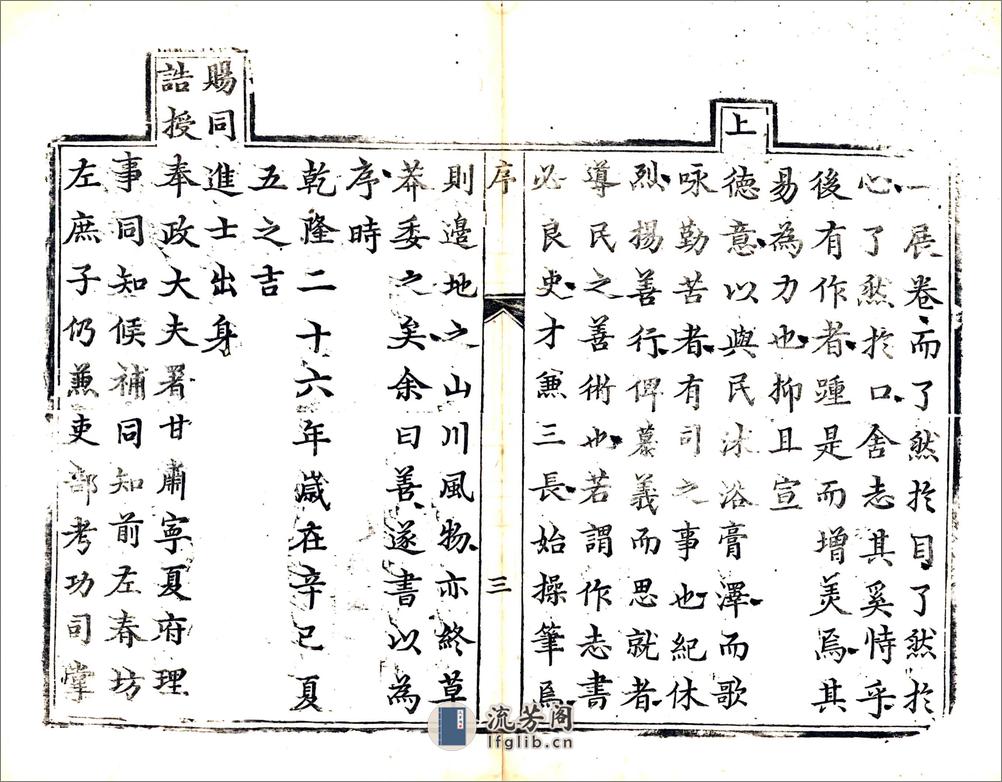 一展卷而了然於目了然於
心了然於口舍志其奚恃乎
後有作者踵是而增美焉其
易為力也抑且宣
上德意以與民沐浴膏澤而歌
咏勤苦者有司之事也紀休
烈揚善行俾慕義而思就者
導民之善術也若謂作志書
必良史才兼三長始操筆焉
序 三
則邊地之山川風物亦終草
莽委之矣余曰善遂書以為
序時
乾隆二十六年歲在辛巳夏
五之吉
賜同進士出身
誥授奉政大夫署甘肅寧夏府理
事同知候補同知前左春坊
左庶子仍兼吏部考功司掌
流芳阁
lfglib.cn